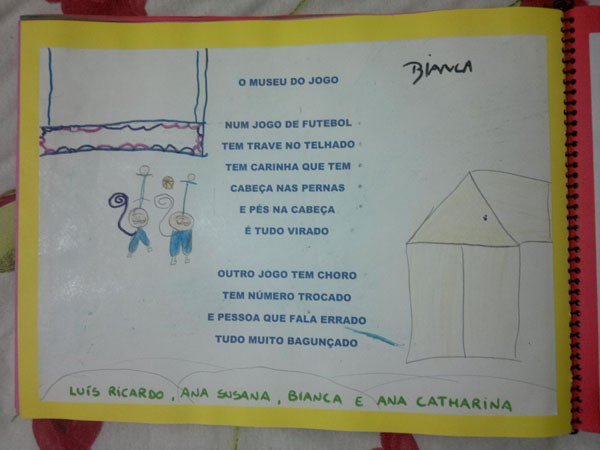 O MUSEU DO JOGO
BIANCA
NUM JOGO DE FUTEBOL
TEM TRAVE NO TELHADO
TEM CARINHA QUE TEM
CABEÇA NAS PERNAS
E PÉS NA CABEÇA
É TUDO VIRADO
OUTRO JOGO TEM CHORO
TEM NÚMERO TROCADO
E PESSOA QUE FALA ERRADO
TUDO MUITO BAGUNÇADO
LUÍS RICARDO, ANA SUSANA, BIANCA E ANA CATHARINA